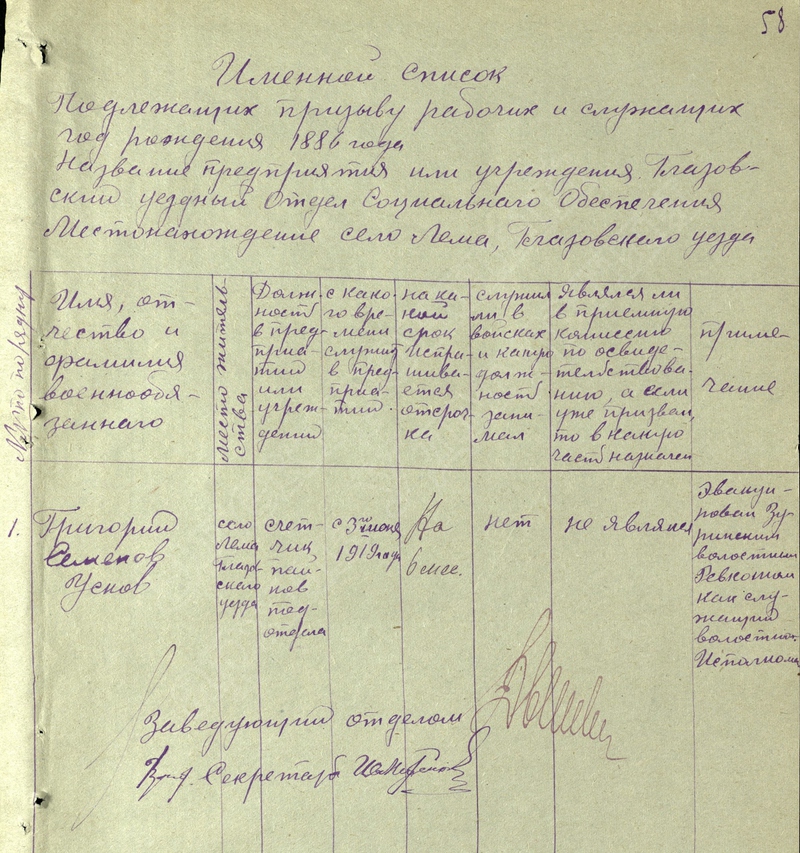 58
Именной список
Подлежащих призыву рабочих и служащих
год рождения 1886 года
Название предприятия или учреждения Глазов-
ский уездный Отдел Социальнаго Обеспечения
Местонахождение село Лема, Глазовскаго уезда
№ по порядку
Имя, от-
чество и
фамилия
военнообя-
заннаго
Место житель-
ства
Долж-
ность
в пред-
прия-
тии
или
учреж-
дении
с како-
го вре-
мени
служит
в пред-
прия-
тии.
на ка-
кой
срок
испра-
шива-
ется
отсроч-
ка
служил
ли в
войсках
и какую
долж-
ность
зани-
мал
Являлся ли
в приемную
комиссию
по освиде-
тельствова-
нию, а если
уже призван,
то в какую
часть назначен
приме-
чание
1.
Григорий
Семенов
Усков
село
Лема
Глазов-
скаго
уезда
счет-
чик
пай-
ков
под-
отдела
с 3го июня
1919 года
На
6 мес.
нет
не являлся
Эвакуи-
рован Зу-
ринским
волостным
Ревкомом
как слу-
жащий
волостно.
Исполкома
Заведующий отделом
Секретарь